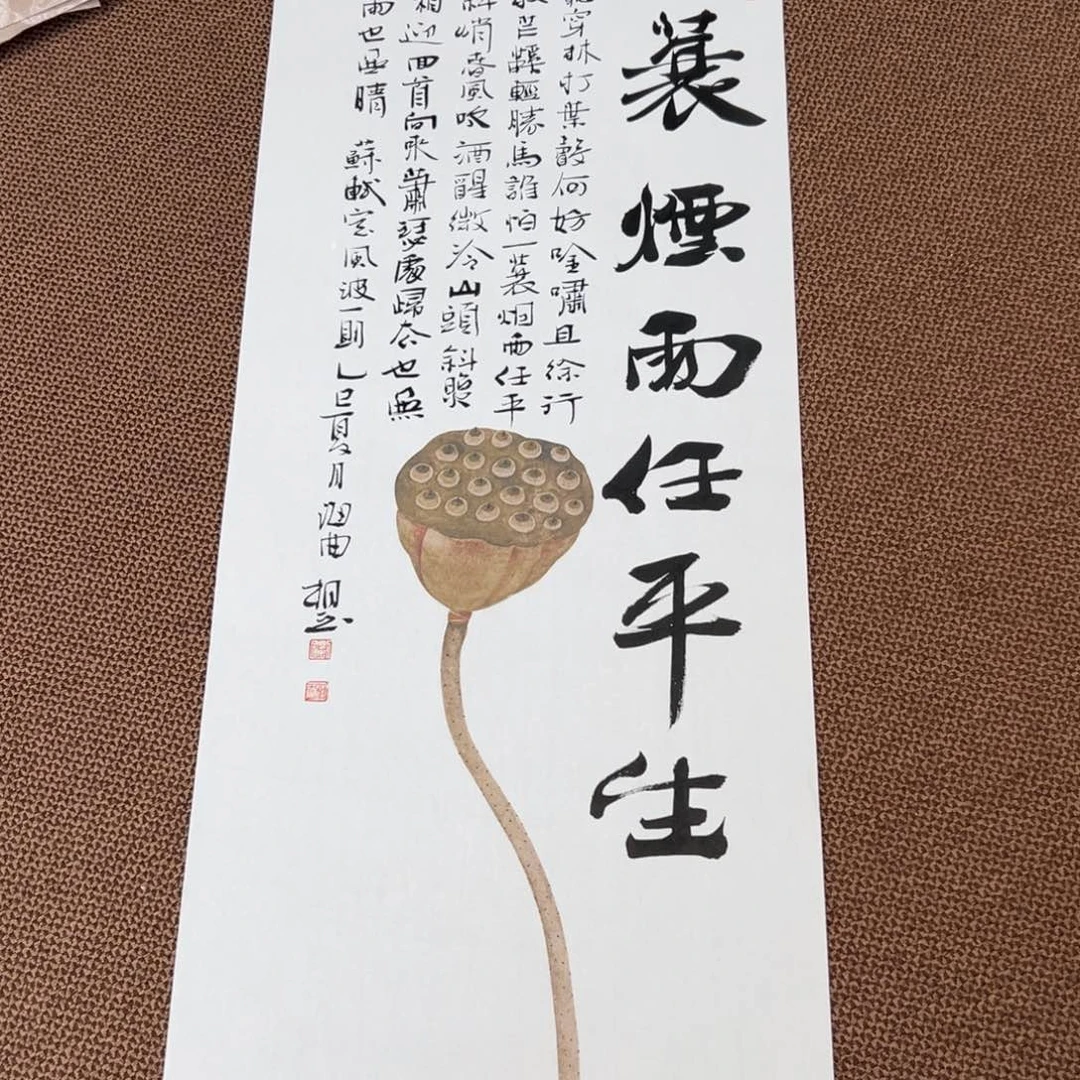 蓑煙雨任平生
穿林打葉聲何妨吟嘯且徐行
芒鞵輕勝馬誰怕一蓑烟雨任平
料峭春風吹酒醒微冷山頭斜照
相迎回首向來蕭瑟處歸去也無
雨也無晴 蘇軾定風波一則 乙巳夏月海曲